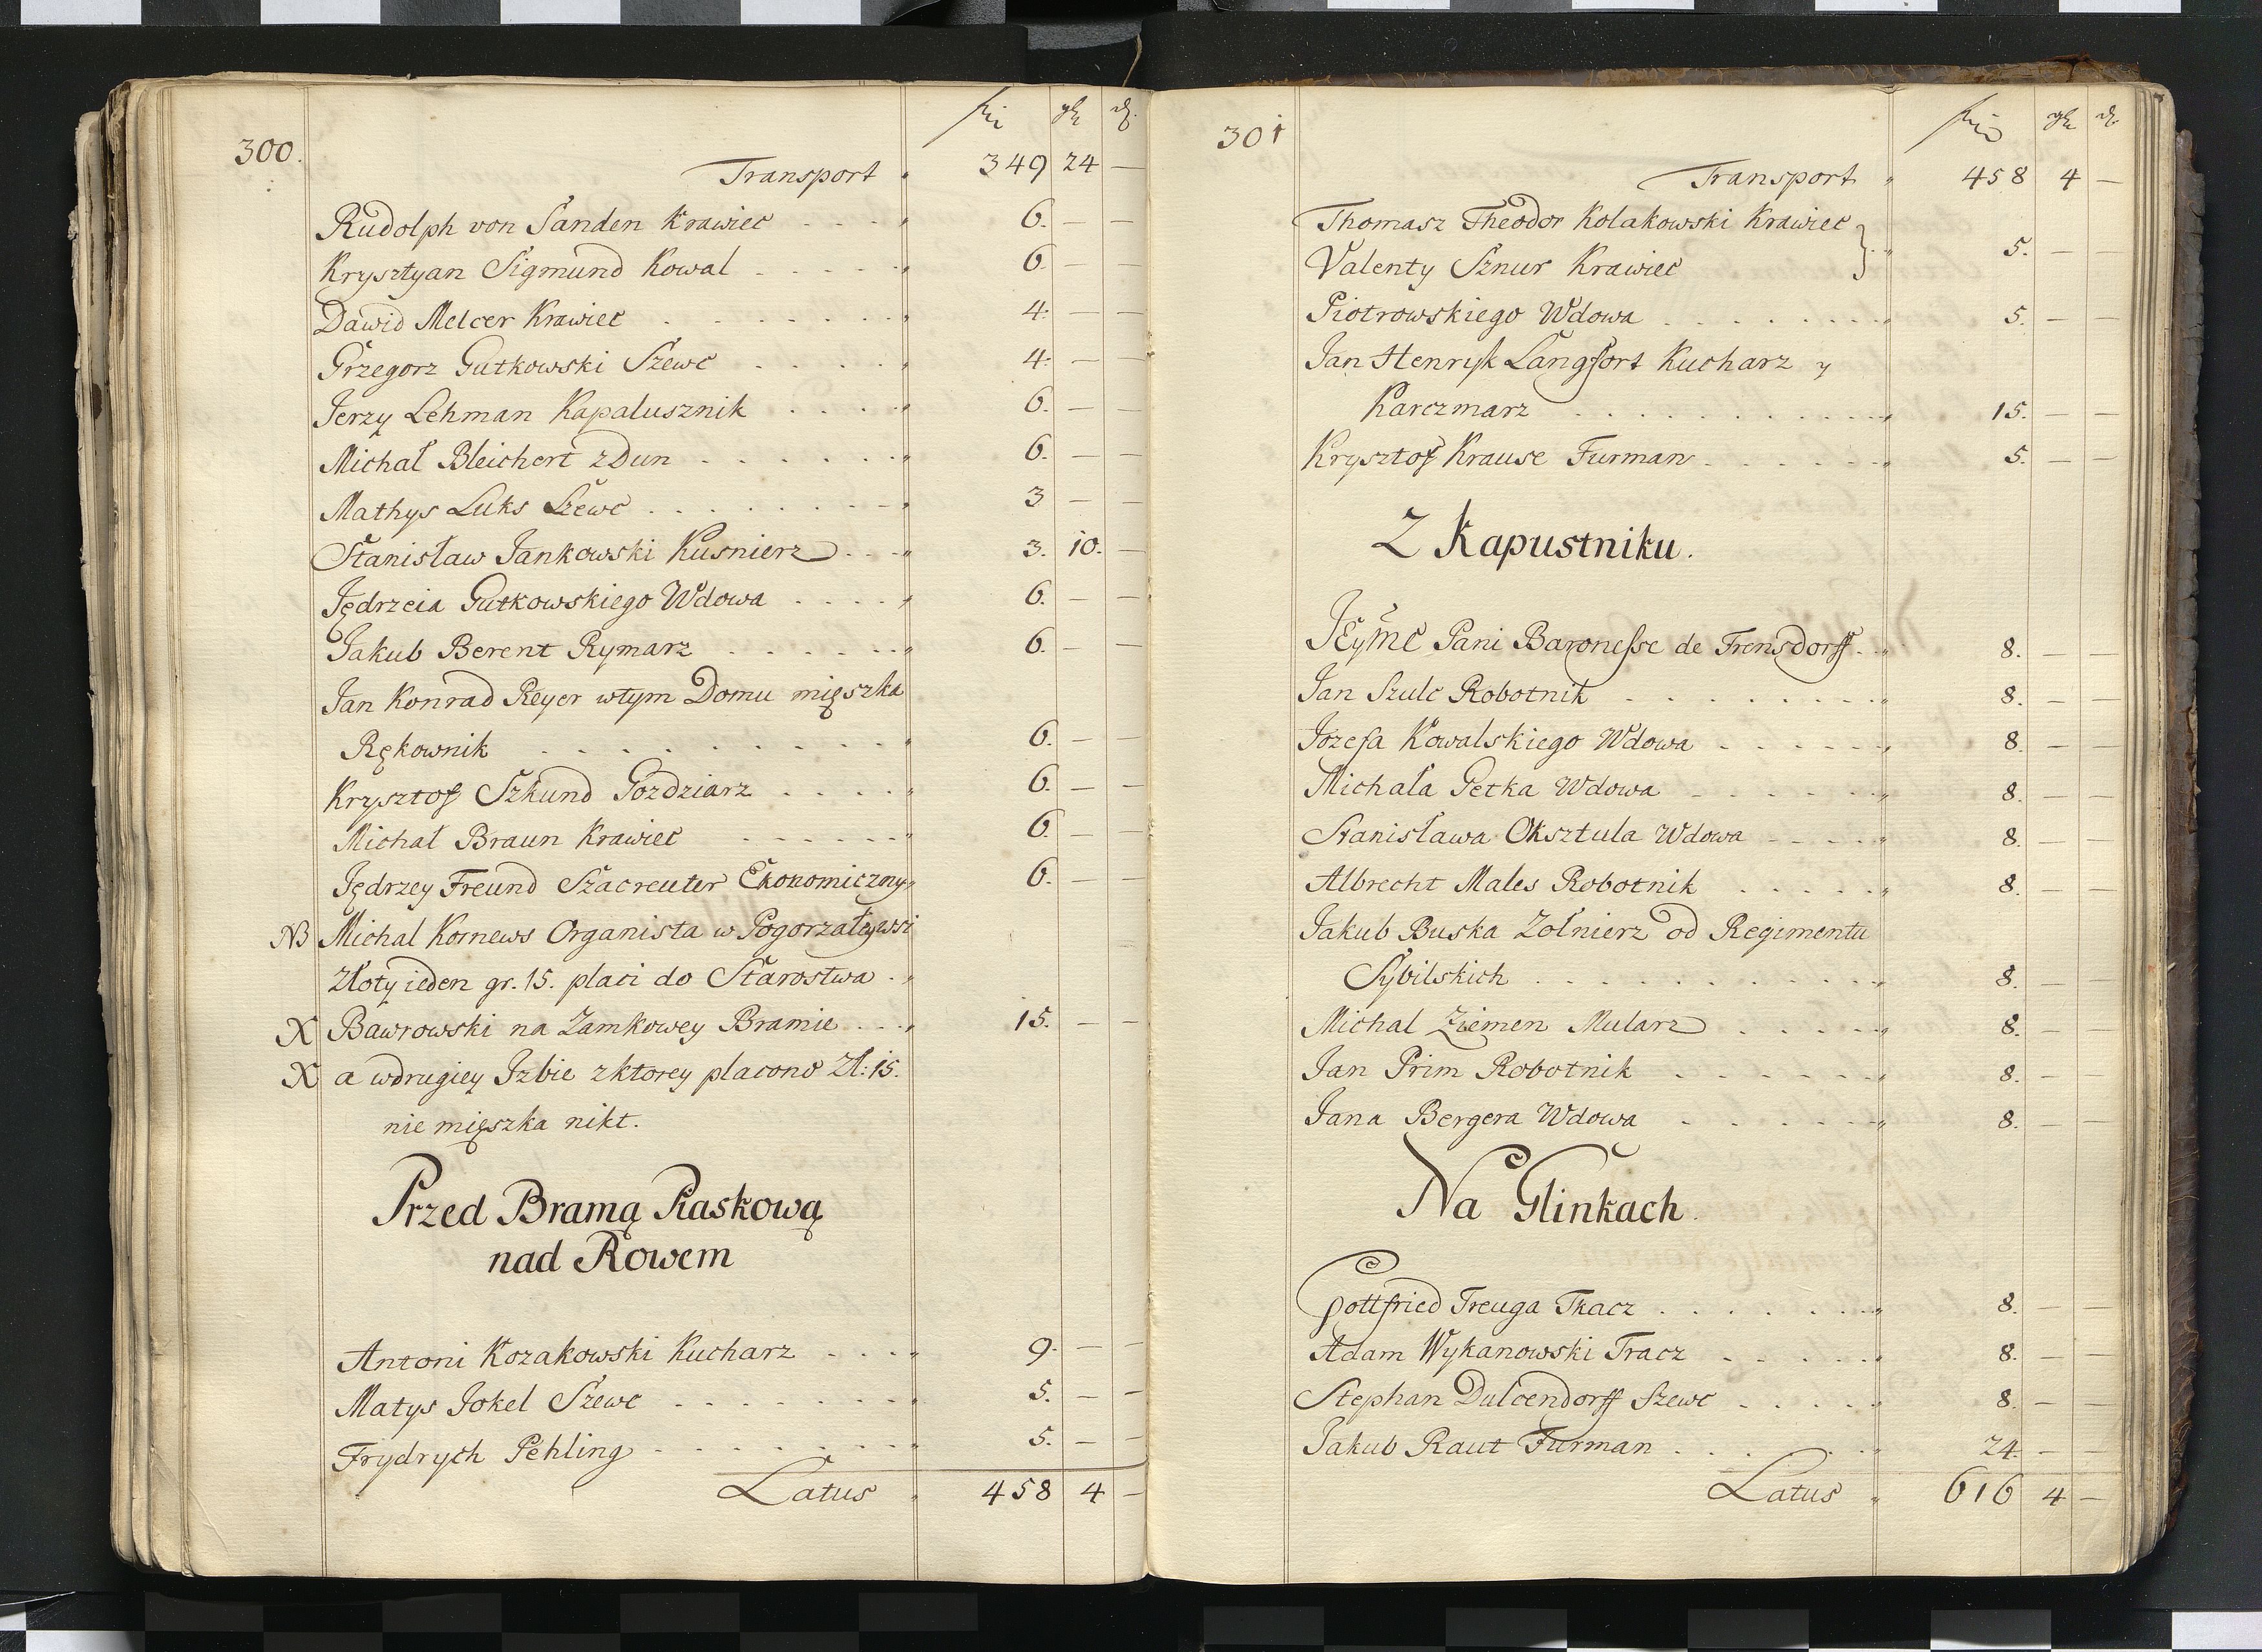 300.
Transport 349 24 —
Rudolph von Sanden Krawiec 6. — —
Krysztyan Sigmund Kowal 6. — —
Dawid Melcer Krawiec 4. — —
Grzegorz Gutkowski Szewc 4. — —
Jerzy Lehman Kapalusznik 6. — —
Michał Bleichert zdun 6. — —
Mathys Luks Szewc 3 — —
Stanisław Jankowski Kusnierz 3. 10. —
Jędrzeia Gutkowskiego Wdowa 6. — —
Jakub Berent Rymarz 6. — —
Jan Konrad Reyer wtym Domu mięszka
Rękownik 6. — —
Krzysztof Szkund Gozdziarz 6. — —
Michał Braun Krawiec 6. — —
Jędrzey Freund Szacreuter Ekonomiczny 6. — —
NB Michal Kornews Organista w Pogorzałeywsi
złoty ieden gr. 15. placi do Starostwa
X Bawrowski na Zamkowey Bramie 15. — —
X a wdrugiey Izbie zktorey placono Zł: 15.
nie mięszka nikt.
Przed Bramą Piaskową
nad Rowem
Antoni Kozakowski Kucharz 9. — —
Matys Jokel Szewc 5. — —
Frydrych Pehling 5. — —
Latus 458 4 —
301
Transport 458 4 —
Thomasz Theodor Kolakowski Krawiec
Valenty Sznur Krawiec } 5. — —
Piotrowskiego Wdowa 5. — —
Jan Henryk Langfort Kucharz y
Karczmarz 15. — —
Krysztof Krause Furman 5. — —
Z Kapustniku.
JEyMC Pani Baronesse de Frensdorff 8. — —
Jan Szulc Robotnik 8. — —
Jozefa Kowalskiego Wdowa 8. — —
Michała Petka Wdowa 8. — —
Stanisława Oksztula Wdowa 8. — —
Albrecht Males Robotnik 8. — —
Jakub Buska Zołnierz od Regimentu
Sybilskich 8. — —
Michal Ziemen Mularz 8. — —
Jan Prim Robotnik 8. — —
Jana Bergera Wdowa 8. — —
Na Glinkach.
Gottfried Treuga Tkacz 8. — —
Adam Wykanowski Tracz 8. — —
Stephan Dulcendorff Szewc 8. — —
Jakub Raut Furman 24. — —
Latus 616 4 —